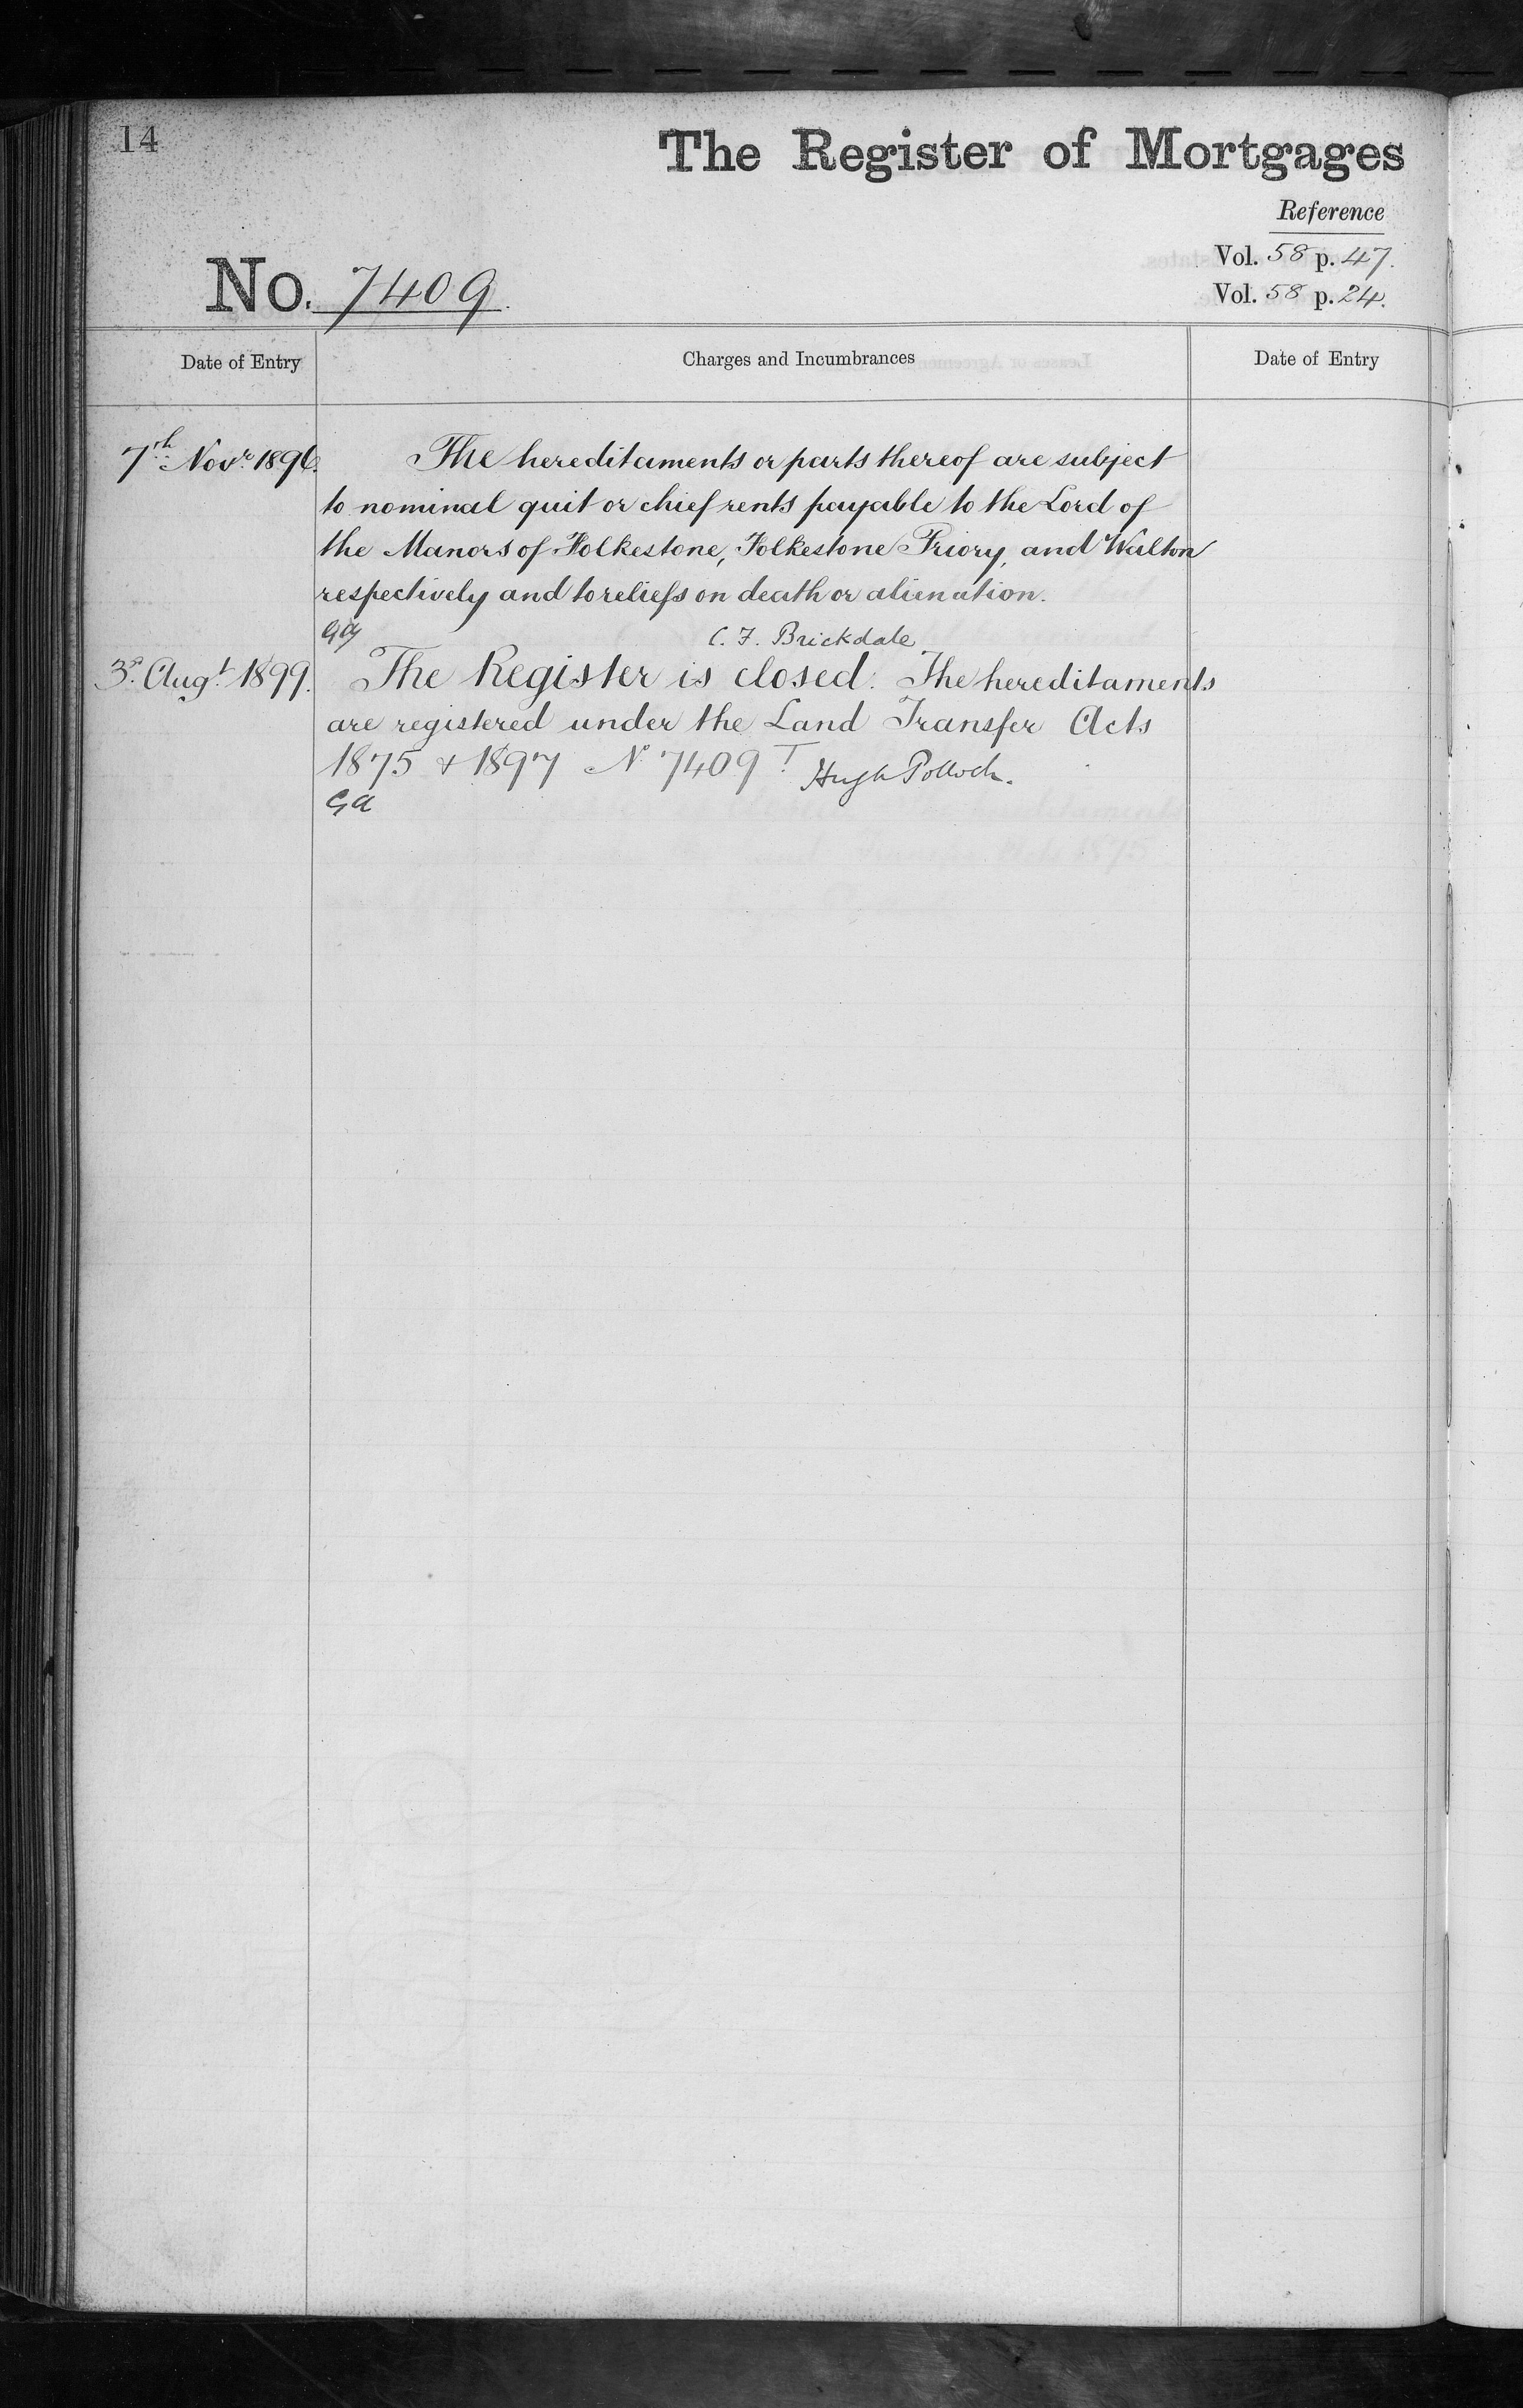 14
The Register of Mortgages
Reference
Vol. 58 p. 47.
Vol. 58 p. 24.
No. 7409.
Date of Entry
Charges and Incumbrances
Date of Entry
7th Novr 1896. The hereditaments or parts thereof are subject
to nominal quit or chief rents payable to the Lord of
the Manors of Folkestone, Folkestone Priory, and Walton
respectively and to reliefs on death or alienation.
C. F. Brickdale
3rd Augt 1899. The Register is closed. The hereditaments
are registered under the Land Transfer Acts
1875 & 1897 No 7409 T. Hugh Pollock.
GA